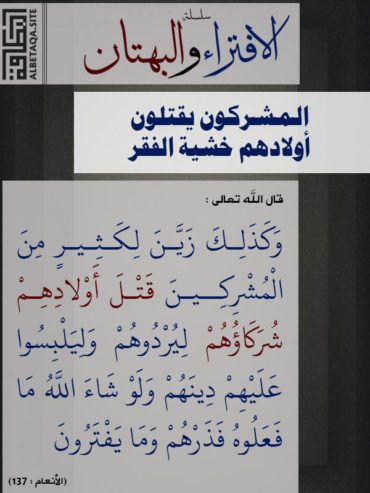 البطاقة
ALBETAQA.SITE
سلسلة
الافتراء والبهتان
المشركون يقتلون
أولادهم خشية الفقر
قال الله تعالى :
وَكَذَلِكَ زَيَّنَ لِكَثِيرٍ مِنَ
الْمُشْرِكِينَ قَتْلَ أَوْلَادِهِمْ
شُرَكَاؤُهُمْ لِيُرْدُوهُمْ وَلِيَلْبِسُوا
عَلَيْهِمْ دِينَهُمْ وَلَوْ شَاءَ اللَّهُ مَا
فَعَلُوهُ فَذَرْهُمْ وَمَا يَفْتَرُونَ
(الأنعام : 137)